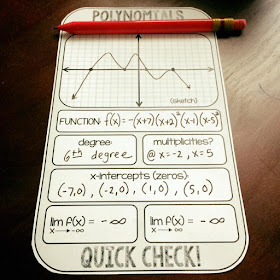 POLYNOMIALS
(sketch)
FUNCTION: f(x)=-(x+7)(x+2)²(x-1)(x-5)²
degree:
6th degree
multiplicities?
@ x=-2, x=5
x-intercepts (zeros):
(-7,0), (-2,0), (1,0), (5,0)
lim f(x) = -∞
x→-∞
lim f(x) = -∞
x→∞
QUICK CHECK!